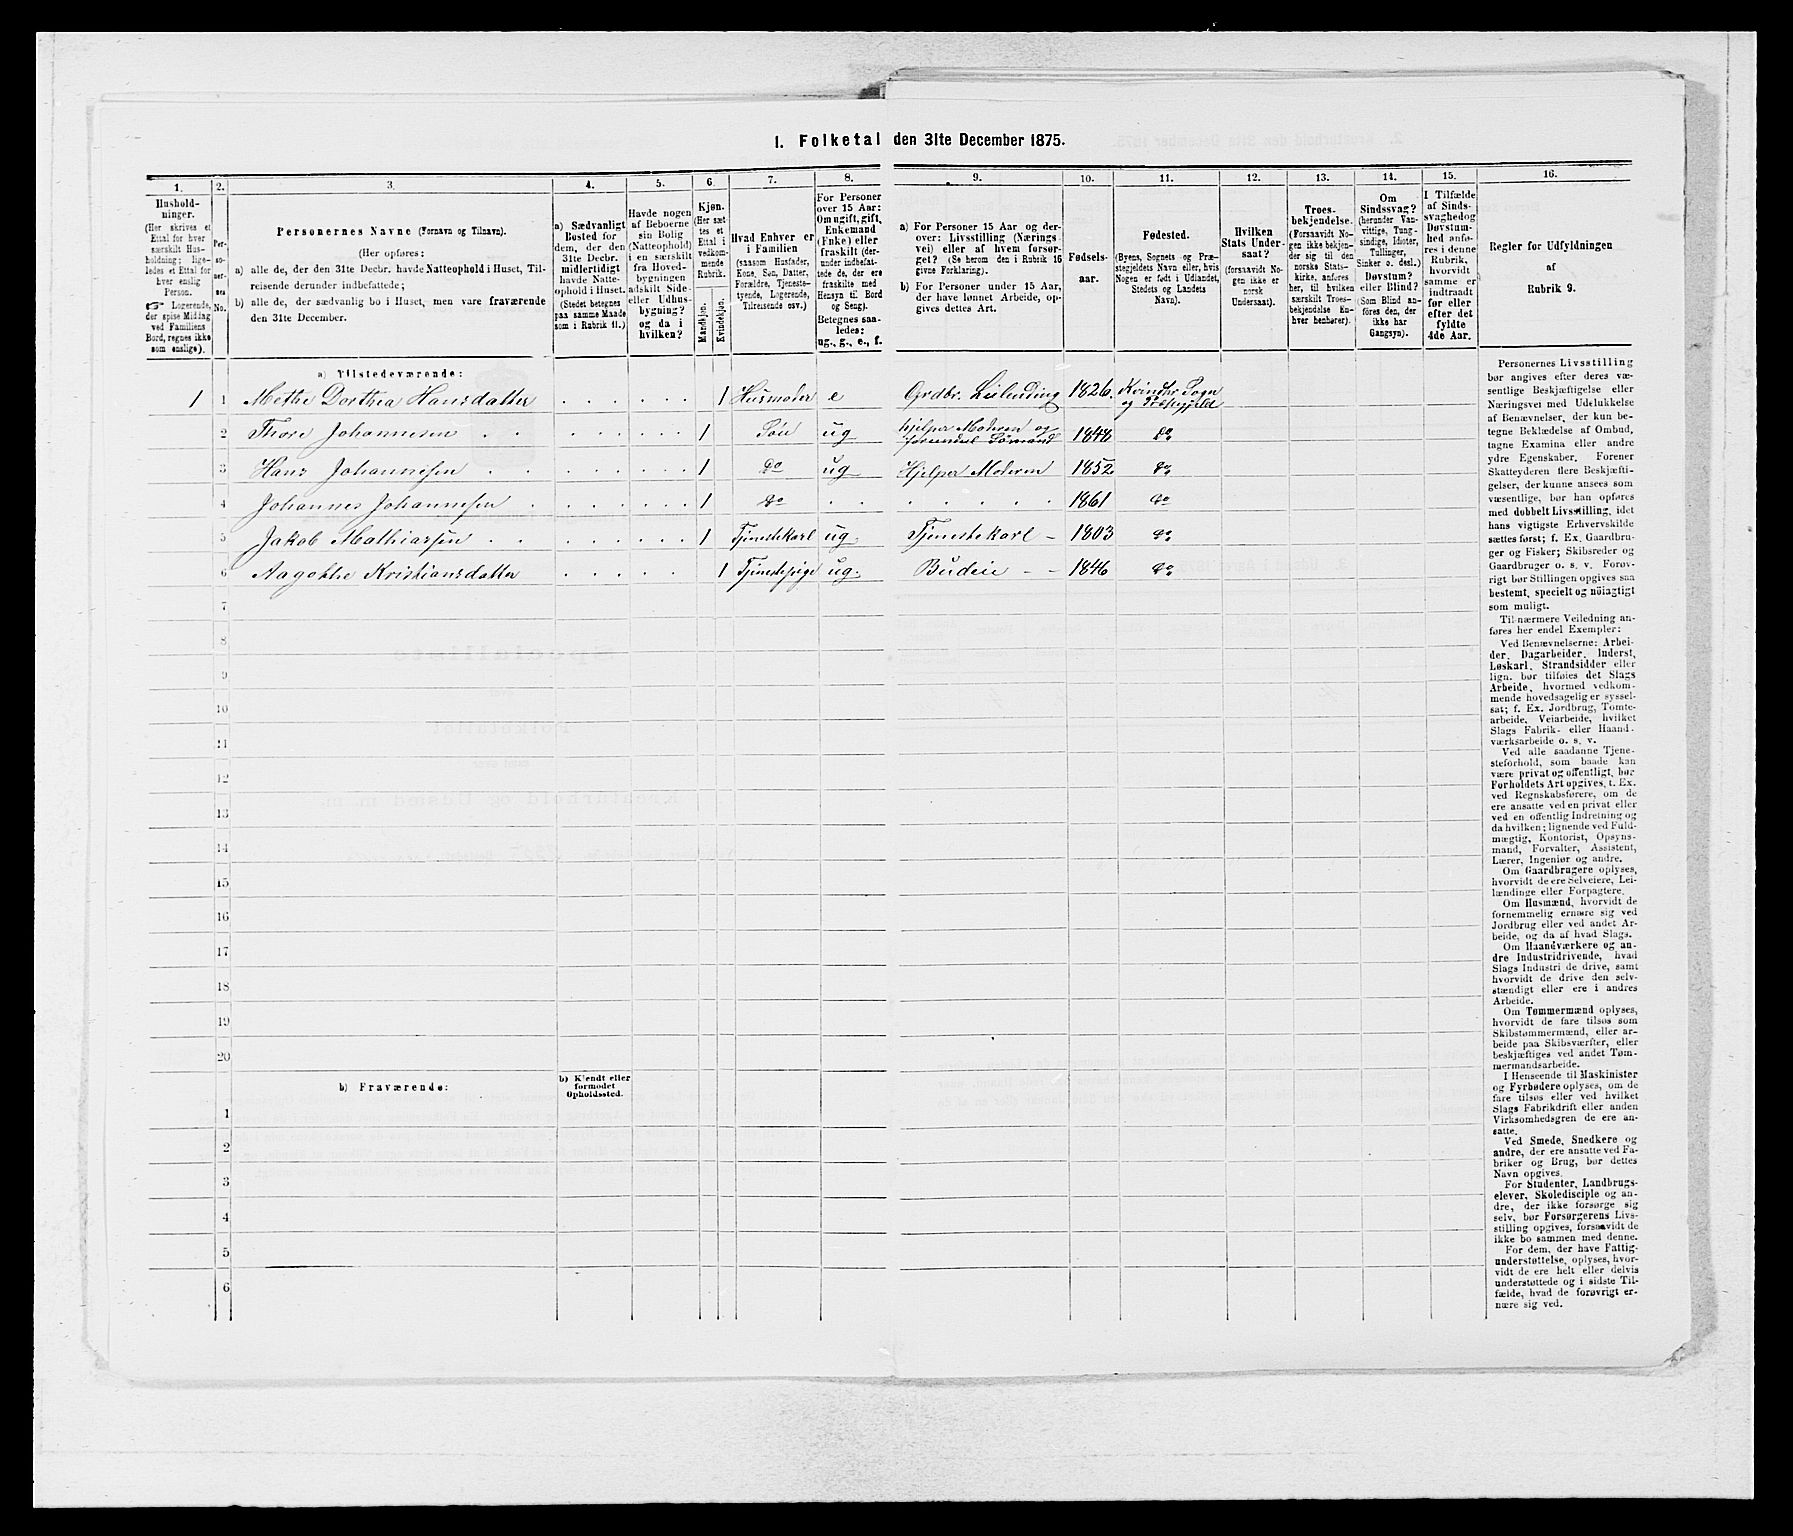 1. Folketal den 31te December 1875.
1.
Hushold-
ninger.
(Her skrives et
Ettal for hver
særskilt Hus-
holdning; lige-
ledes et Ettal for
hver enslig
Person.
☞ Logerende,
der spise Middag
ved Familiens
Bord, regnes ikke
som enslige).
2.
Per-
so-
ner-
nes
No.
3.
Personernes Navne (Fornavn og Tilnavn).
(Her opføres:
a) alle de, der den 31te Decbr. havde Natteophold i Huset, Til-
reisende derunder indbefattede;
b) alle de, der sædvanlig bo i Huset, men vare fraværende
den 31te December.
4.
a) Sædvanligt
Bosted for
dem, der den
31te Decbr.
midlertidigt
havde Natte-
ophold i Huset.
(Stedet betegnes
paa samme Maade
som i Rubrik 11.)
5.
Havde nogen
af Beboerne
sin Bolig
(Natteophold)
i en særskilt
fra Hoved-
bygningen
adskilt Side-
eller Udhus-
bygning?
og da i
hvilken?
6.
Kjøn.
(Her sæt
tes et
Ettal i
vedkom-
mende
Rubrik.
Mandkjøn.
Kvindekjøn.
7.
Hvad Enhver er
i Familien
(saasom Husfader,
Kone, Søn, Datter,
Forældre, Tjeneste-
tyende, Logerende,
Tilreisende osv.)
8.
For Personer
over 15 Aar:
Om ugift, gift,
Enkemand
(Enke) eller
fraskilt (der-
under indbefat-
tede de, der ere
fraskilte med
Hensyn til Bord
og Seng).
Betegnes saa-
ledes:
ug., g., e., f.
9.
a) For Personer 15 Aar og der-
over: Livsstilling (Nærings-
vei) eller af hvem forsør-
get? (Se herom den i Rubrik 16
givne Forklaring).
b) For Personer under 15 Aar,
der have lønnet Arbeide, op-
gives dettes Art.
10.
Fødsels-
aar.
11.
Fødested.
(Byens, Sognets og Præ-
stegjeldets Navn eller, hvis
Nogen er født i Udlandet,
Stedets og Landets
Navn).
12.
Hvilken
Stats Under-
saat?
(forsaavidt No-
gen ikke er
norsk
Undersaat).
13.
Troes-
bekjendelse.
(Forsaavidt No-
gen ikke bekjen-
der sig til den
norske Stats-
kirke, anføres
her, til hvilken
særskilt Troes-
bekjendelse En-
hver henhører).
14.
Om
Sindssvag?
(herunder Van-
vittige, Tung-
sindige, Idioter,
Tullinger,
Sinker o. desl.)
Døvstum?
eller Blind?
(Som Blind an-
føres den, der
ikke har
Gangsyn).
15.
I Tilfælde
af Sinds-
svaghed og
Døvstum-
hed anfø-
res i denne
Rubrik,
hvorvidt
samme er
indtraadt
før eller
efter det
fyldte
4de Aar.
16.
Regler for Udfyldningen
af
Rubrik 9.
a) Tilstedeværende:
1 1 Methe Dorthea Hansdatter 1 Husmoder e Grdbr. Leilending 1826. Kvindhr. Sogn
og Præstegjeld
2 Thore Johannesen 1 Søn ug hjelper Moderen og
Sømand 1848 do
3 Hans Johannesen 1 do ug Hjelper Moderen 1852 do
4 Johannes Johannesen 1 do 1861 do
5 Jakob Mathiassen 1 Tjenestekarl ug. Tjenestekarl – 1803 do
6 Aagothe Kristiansdatter 1 Tjenestepige ug. Budeie – – 1846 do
7
8
9
10
11
12
13
14
15
16
17
18
19
20
b) Fraværende:
b) Kjendt eller
formodet
Opholdssted.
1
2
3
4
5
6
Personernes Livsstilling
bør angives efter deres væ-
sentlige Beskjæftigelse eller
Næringsvei med Udelukkelse
af Benævnelser, der kun be-
tegne Beklædelse af Ombud,
tagne Examina eller andre
ydre Egenskaber. Forener
Skatteyderen flere Beskjæfti-
gelser, der kunne ansees som
væsentlige, bør han opføres
med dobbelt Livsstilling, idet
hans vigtigste Erhvervskilde
sættes først; f. Ex. Gaardbru-
ger og Fisker; Skibsreder og
Gaardbruger o. s. v. Forøv-
rigt bør Stillingen opgives saa
bestemt, specielt og nöiagtigt
som muligt.
Til nærmere Veiledning an-
føres her endel Exempler:
Ved Benævnelserne: Arbei-
der, Dagarbeider, Inderst,
Løskarl, Strandsidder eller
lign. bør tilføies det Slags
Arbeide, hvormed vedkom-
mende hovedsagelig er syssel-
sat; f. Ex. Jordbrug, Tomte-
arbeide, Veiarbeide, hvilket
Slags Fabrik- eller Haand-
værksarbeide o. s. v.
Ved alle saadanne Tjene-
steforhold, som baade kan
være privat og offentligt, bør
Forholdets Art opgives, t. Ex.
ved Regnskabsførere, om de
ere ansatte ved en privat eller
ved en offentlig Indretning og
da hvilken; lignende ved Fuld-
mægtig, Kontorist, Opsyns-
mand, Forvalter, Assistent,
Lærer, Ingeniør og andre.
Om Gaardbrugere oplyses,
hvorvidt de ere Selveiere, Lei-
lændinge eller Forpagtere.
Om Husmænd, hvorvidt de
fornemmelig ernære sig ved
Jordbrug eller ved andet Ar-
beide, og da af hvad Slags.
Om Haandværkere og an-
dre Industridrivende, hvad
Slags Industri de drive, samt
hvorvidt de drive den selv-
stændigt eller ere i andres
Arbeide.
Om Tømmermænd oplyses,
hvorvidt de fare tilsøs som
Skibstømmermænd, eller ar-
beide paa Skibsværfter, eller
beskjæftiges ved andet Tøm-
mermandsarbeide.
I Henseende til Maskinister
og Fyrbødere oplyses, om de
fare tilsøs eller ved hvilket
Slags Fabrikdrift eller anden
Virksomhedsgren de ere an-
satte.
Ved Smede, Snedkere og
andre, der ere ansatte ved Fa-
briker og Brug, bør dettes
Navn opgives.
For Studenter, Landbrugs-
elever, Skoledisciple og an-
dre, der ikke forsørge sig
selv, bør Forsørgerens Livs-
stilling opgives, forsaavidt de
ikke bo sammen med denne.
For dem, der have Fattig-
understøttelse, oplyses, hvor-
vidt de ere helt eller delvis
understøttede og i sidste Til-
fælde, hvad de forøvrigt er-
nære sig ved.